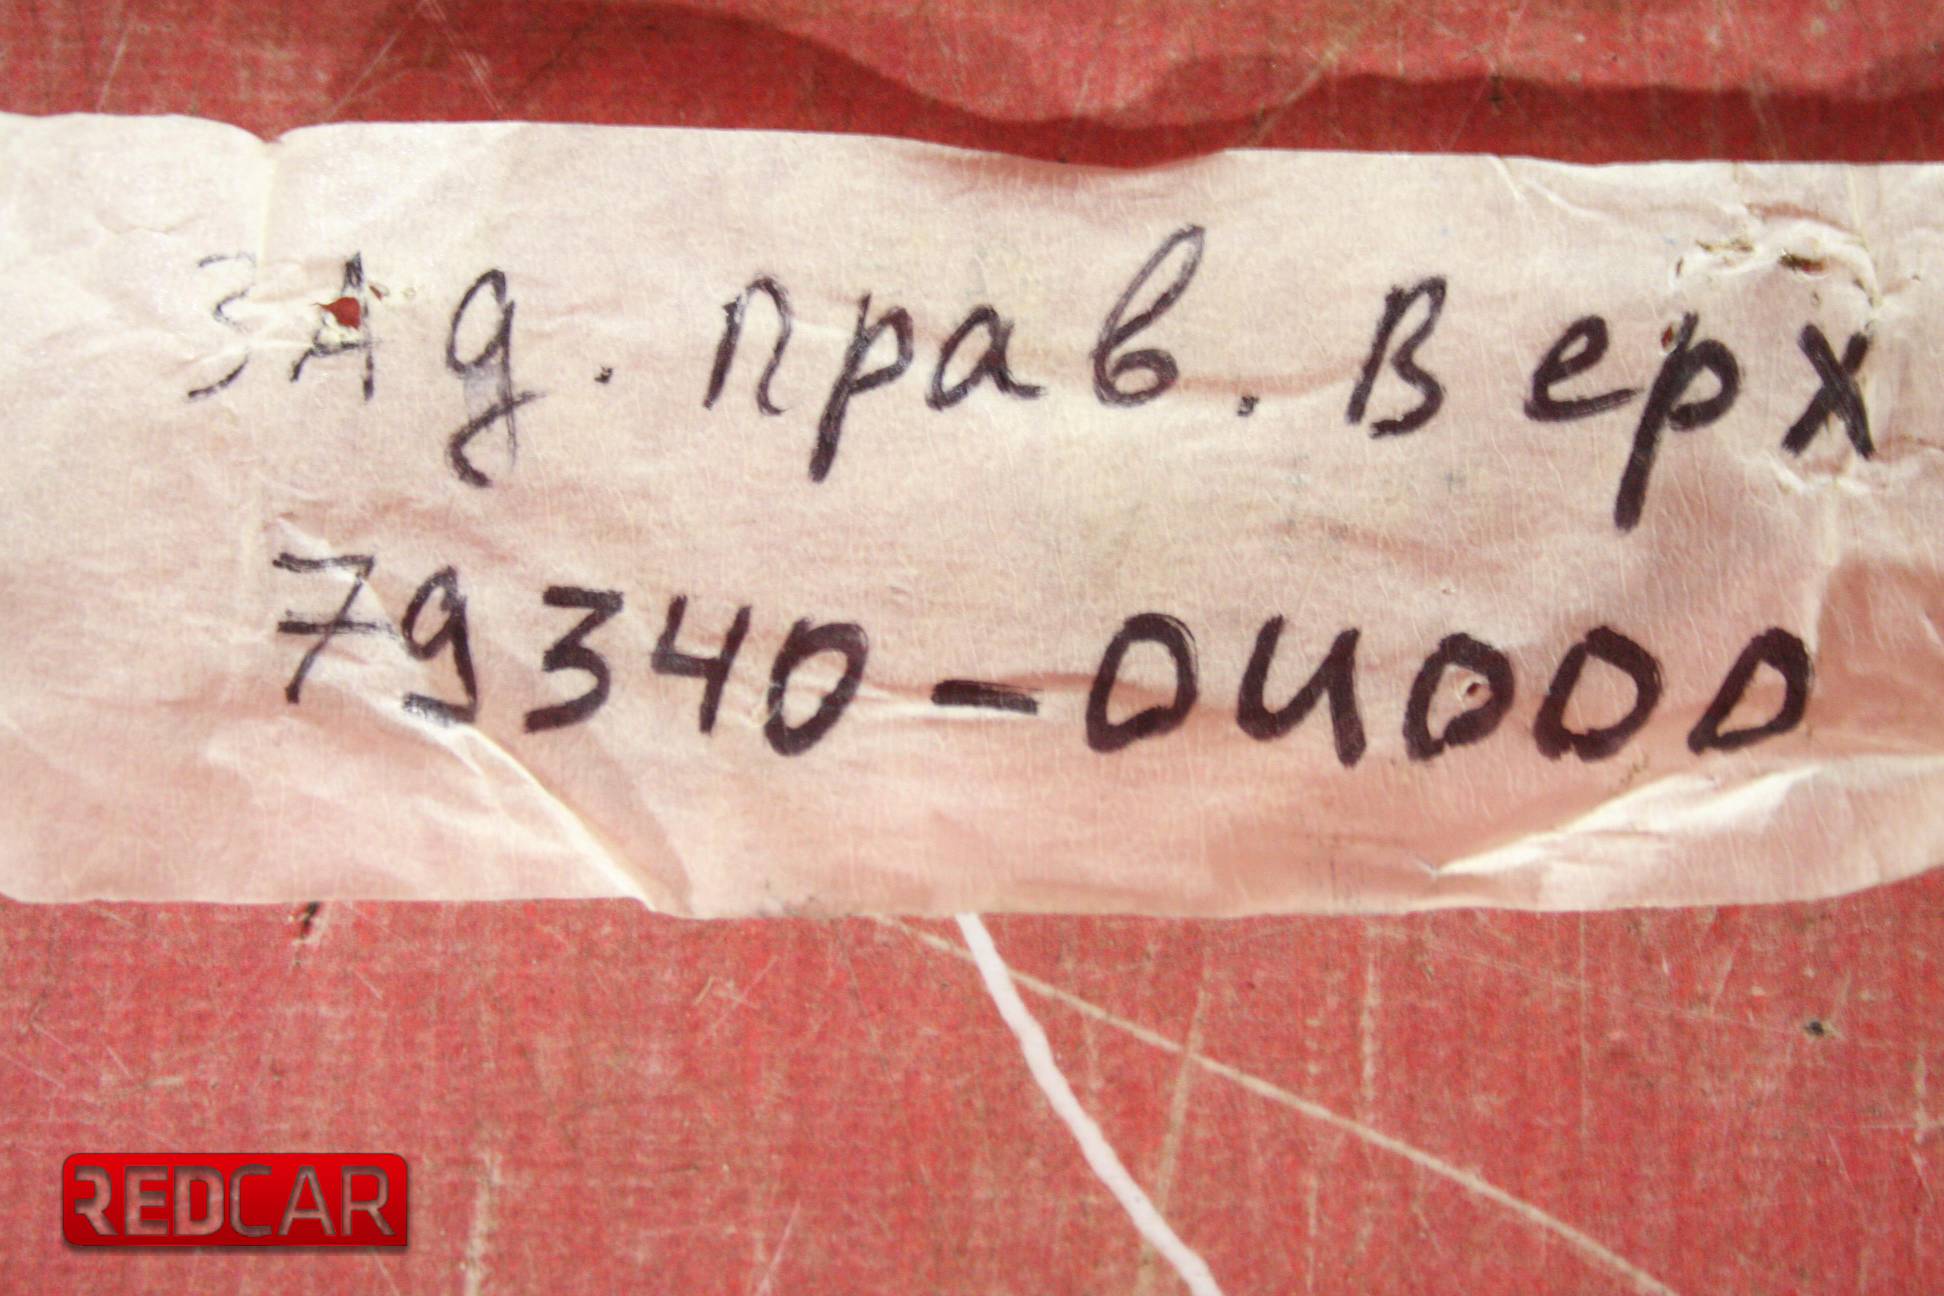 ЗАд. прав. Верх
79340-0U000
REDCAR